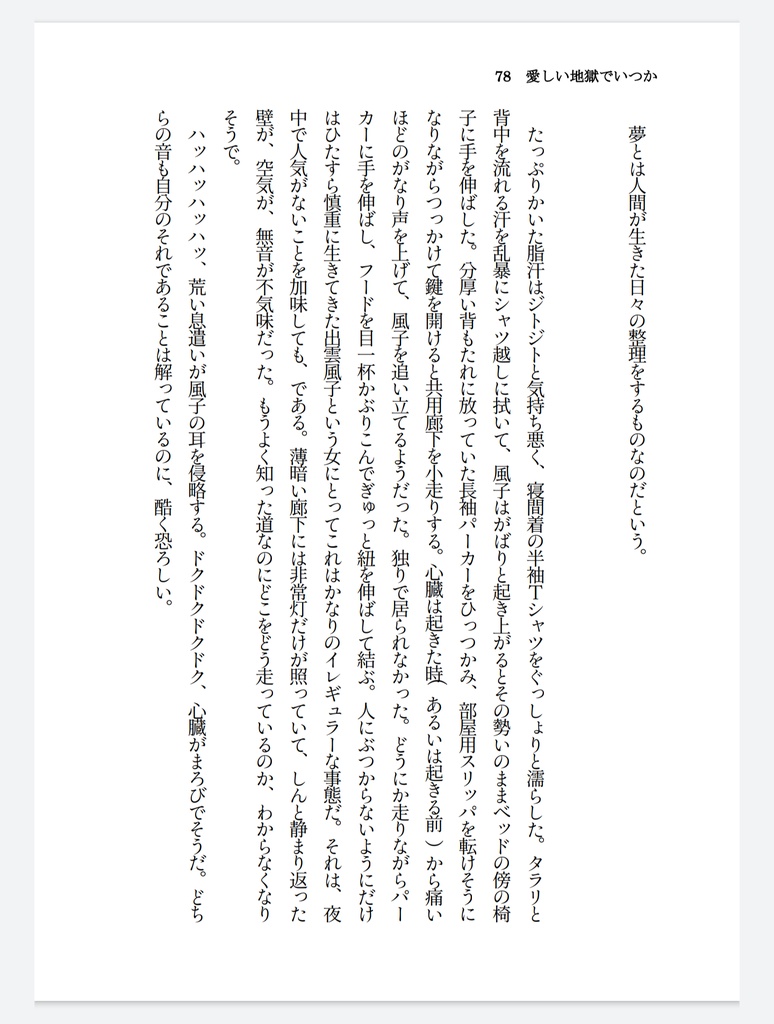 78　愛しい地獄でいつか
夢とは人間が生きた日々の整理をするものなのだという。
たっぷりかいた脂汗はジトジトと気持ち悪く、寝間着の半袖Tシャツをぐっしょりと濡らした。タラリと
背中を流れる汗を乱暴にシャツ越しに拭いて、風子はがばりと起き上がるとその勢いのままベッドの傍の椅
子に手を伸ばした。分厚い背もたれに放っていた長袖パーカーをひっつかみ、部屋用スリッパを転けそうに
なりながらつっかけて鍵を開けると共用廊下を小走りする。心臓は起きた時(あるいは起きる前)から痛い
ほどのがなり声を上げて、風子を追い立てるようだった。独りで居られなかった。どうにか走りながらパー
カーに手を伸ばし、フードを目一杯かぶりこんでぎゅっと紐を伸ばして結ぶ。人にぶつからないようにだけ
はひたすら慎重に生きてきた出雲風子という女にとってこれはかなりのイレギュラーな事態だ。それは、夜
中で人気がないことを加味しても、である。薄暗い廊下には非常灯だけが照っていて、しんと静まり返った
壁が、空気が、無音が不気味だった。もうよく知った道なのにどこをどう走っているのか、わからなくなり
そうで。
ハッハッハッハッ、荒い息遣いが風子の耳を侵略する。ドクドクドクドク、心臓がまろびでそうだ。どち
らの音も自分のそれであることは解っているのに、酷く恐ろしい。